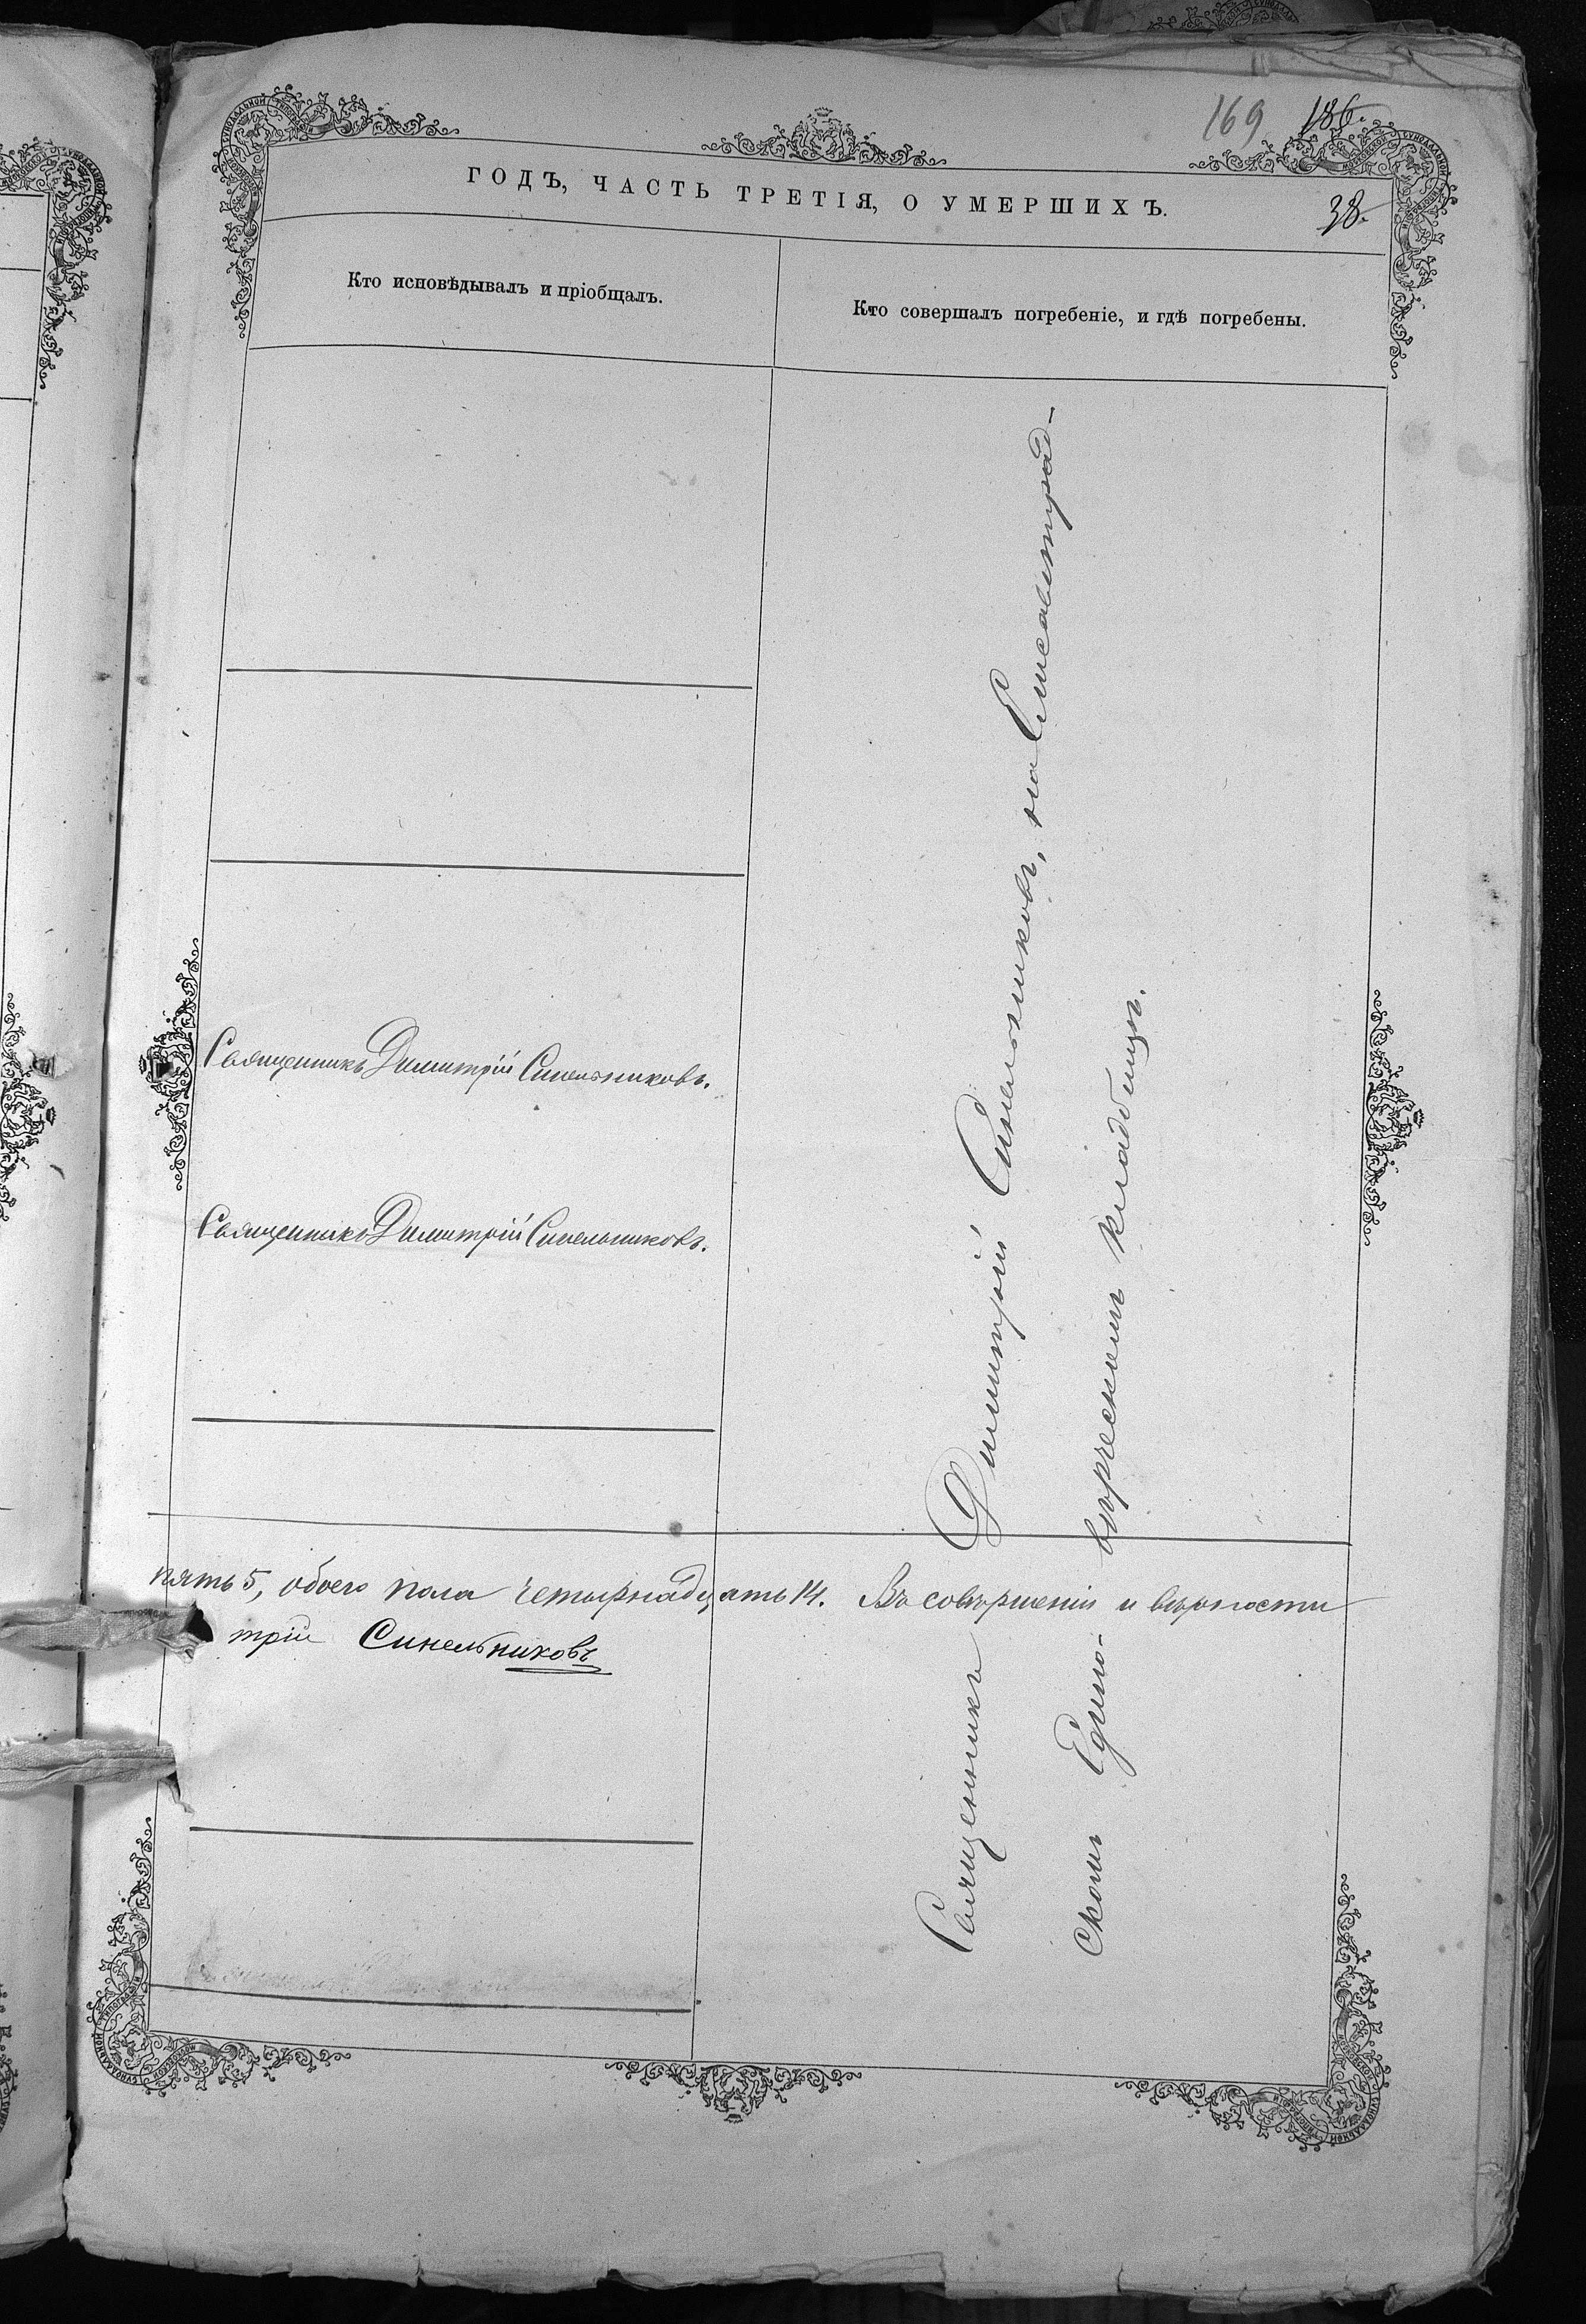 169 186.
ГОДЪ, ЧАСТЬ ТРЕТІЯ, О УМЕРШИХЪ.
38.
Кто исповѣдывалъ и пріобщалъ.
Кто совершалъ погребеніе, и гдѣ погребены.
Священникъ Димитрій Синельниковъ.
Священникъ Димитрій Синельниковъ.
Священникъ Димитрій Синельниковъ, на Елисаветград-
скомъ Едино-вѣрческомъ кладбищѣ.
пять 5, обоего пола четырнадцать 14. Въ совершеніи и вѣрности
трій Синельниковъ